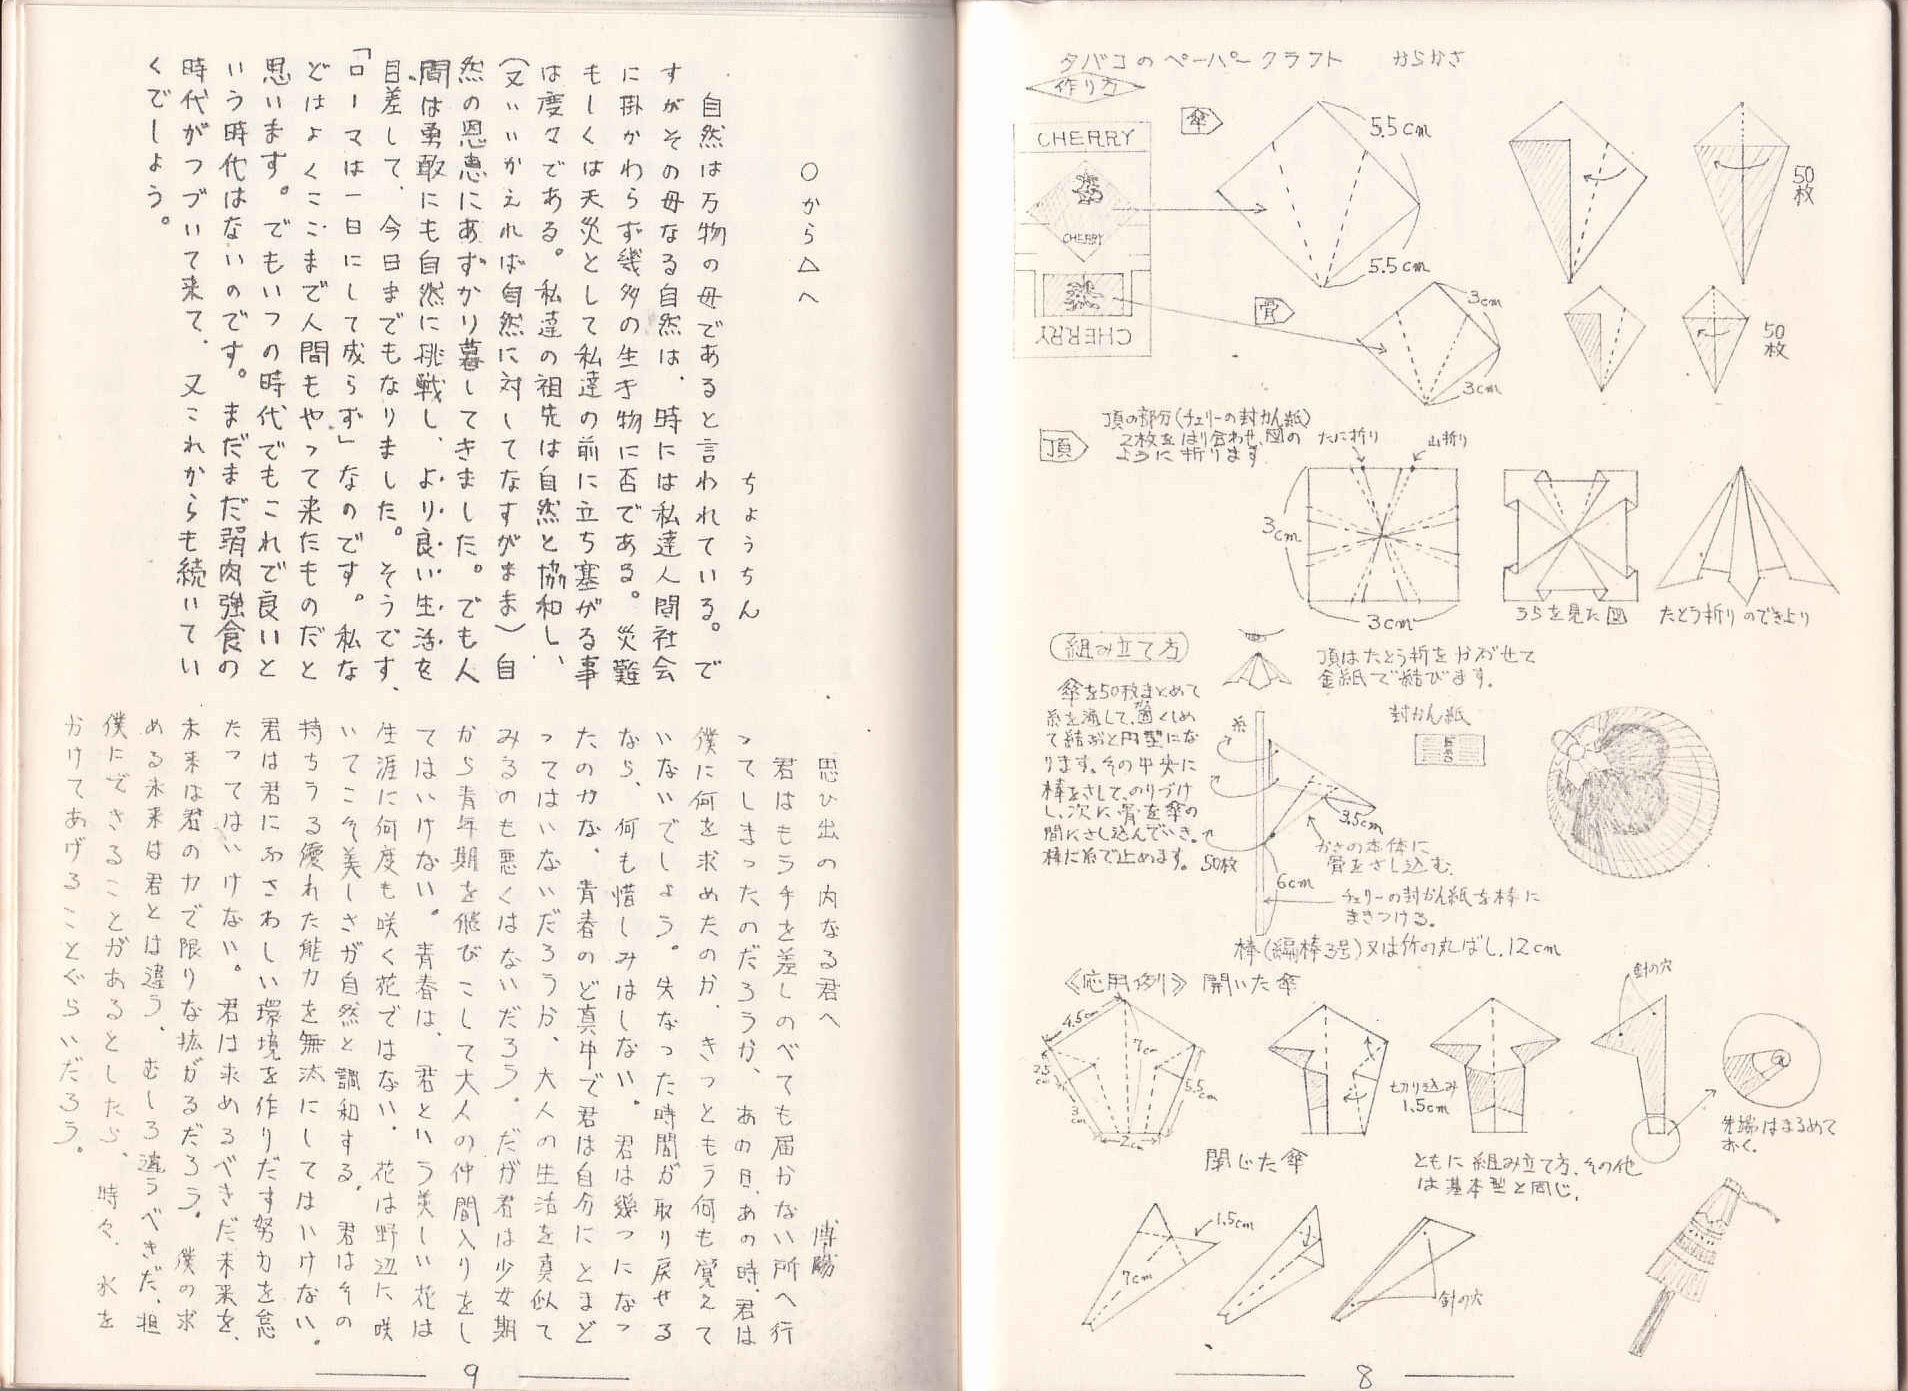 タバコのペーパークラフト　からかさ
作り方
傘
CHERRY
CHERRY
CHERRY
5.5cm
5.5cm
50枚
骨
3cm
3cm
50枚
頂
頂の部分(チェリーの封かん紙)
2枚をはり合わせ、図の
ように折ります
たに折り
山折り
3cm
3cm
うらを見た図
たとう折りのできより
組み立て方
頂はたとう折をかぶせて
金紙で結びます。
傘を50枚まとめて
糸を通して、固くしめ
て結ぶと円型にな
ります。その中央に
棒をさして、のりづけ
し、次に骨を傘の
間にさし込んでいき、
棒に糸で止めます。
糸
封かん紙
3.5cm
かさの本体に
骨をさし込む。
50枚
6cm
チェリーの封かん紙を棒に
まきつける。
棒(編棒3号)又は竹の丸ばし.12cm
≪応用例≫ 開いた傘
針の穴
4.5cm
7cm
2.5cm
3cm
5.5cm
2cm
切り込み
1.5cm
先端はまるめて
おく。
閉じた傘
ともに組み立て方、その他
は基本型と同じ。
1.5cm
7cm
針の穴
8
○から△へ
ちょうちん
自然は万物の母であると言われている。で
すがその母なる自然は、時には私達人間社会
に掛かわらず幾多の生き物に否である。災難
もしくは天災として私達の前に立ち塞がる事
は度々である。私達の祖先は自然と協和し、
(又いいかえれば自然に対してなすがまま)自
然の恩恵にあずかり暮してきました。でも人
間は勇敢にも自然に挑戦し、より良い生活を
目差して、今日までもなりました。そうです、
「ローマは一日にして成らず」なのです。私な
どはよくここまで人間もやって来たものだと
思います。でもいつの時代でもこれで良いと
いう時代はないのです。まだまだ弱肉強食の
時代がつづいて来て、又これからも続いてい
くでしょう。
思ひ出の内なる君へ
博陽
君はもう手を差しのべても届かない所へ行
ってしまったのだろうか、あの日、あの時、君は
僕に何を求めたのか、きっともう何も覚えて
いないでしょう。失なった時間が取り戻せる
なら、何も惜しみはしない。君は幾つになっ
たのかな、青春のど真中で君は自分にとまど
ってはいないだろうか、大人の生活を真似て
みるのも悪くはないだろう。だが君は少女期
から青年期を飛びこして大人の仲間入りをし
てはいけない。青春は、君という美しい花は
生涯に何度も咲く花ではない、花は野辺に咲
いてこそ美しさが自然と調和する、君はその
持ちうる優れた能力を無汰にしてはいけない。
君は君にふさわしい環境を作りだす努力を怠
たってはいけない。君は求めるべきだ未来を、
未来は君の力で限りな拡がるだろう。僕の求
める未来は君とは違う、むしろ違うべきだ、担
僕にできることがあるとしたら、時々、水を
かけてあげることぐらいだろう。
9